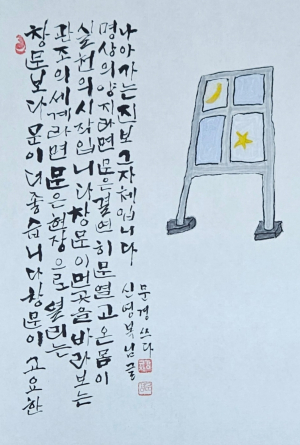 창문보다 문이 더 좋습니다 창문이 고요한
관조의 세계라면 문은 현장으로 열리는
실천의 시작입니다 창문이 먼곳을 바라보는
명상의 양지라면 문은 결연히 문열고 온몸이
나아가는 진보 그 자체입니다
신영복님 글
문경 쓰다